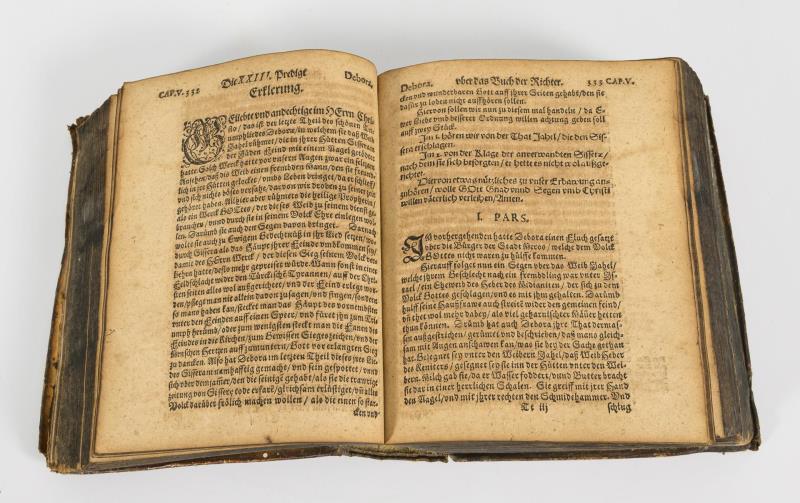 CAP.V. 332 Die XXIII. Predige Debora.
Erklerung.
GEliebte vnd andechtige im HErrn Chri-
sto / das ist der letzte Theil des schönen Tri-
umphliedes Debora / in welchem sie daß Weib
Jahel rühmet / die in jhrer Hütten Sisseram
der Jüden Feind mit einem Nagel getödtet
hatte. Solch Werck hatte vor vnsern Augen zwar ein selzam
Ansehen / daß das Weib einen frembden Gann / den sie freund-
lich in jre Hütten gelocket / vmbs Leben bringet / da er schlieff /
vnd sich nichts böses versahe / darvon wir droben zu seiner zeit
gehöret haben. Allhier aber rühmets die heilige Prophetin /
als ein Werck GOttes / der dieses Weib zu seinem dienst ge-
brauchen / vnnd durch sie in seinem Volck Ehre einlegen wol-
len. Darumb sie auch den Segen davon bringet. Darnach
wolte sie auch zu Ewigem Gedechtnüß in jhr Lied setzen / wo-
durch Sissera als das Häupt jhrer Feinde vmbkommen sey /
damit des HErren Werck / der diesen Sieg seinem Volck verlie-
hen hatte / desto mehr gepreiset würde. Wann sonst in einer
Feldschlacht wider den Türckische Tyrannen / auff der Chri-
sten seiten alles wol außgerichtet / vnd der Feind erlegt wor-
den / pfleget man nit allein davon zu sagen / vnd singen / sondern
so mans haben kan / stecket man das Häupt des vornembsten
vnter den Feinden auff einen Speer / vnd füret jhn zum Tri-
umph herümb / oder zum wenigsten stecket man die Fanen des
Feindes in die Kirchen / zum Gewissen Siegeszeichen / vnd der
Christlichen Hertzen auffzumuntern / Gott vor erlangten Sieg
zu dancken. Also hat Debora im letzten Theil dieses jres Lie-
des Sisseram namhafftig gemacht / vnd sein gespottet / vnnd
sich ober dem jamer / den die seinige gehabt / als sie die trawrige
zeitung von Sissere tode erfare / gleichsam erlüstiget / vñ alles
Volck darüber frölich machen wollen / als die einen so star-
cken vnd
Debora. vber das Buch der Richter. 333 CAP.V.
cken vnd wunderbaren Gott auff jhrer Seiten gehabt / den sie
dafür zu loben nicht auffhören sollen.
Hiervon sollen wir nun zu diesem mal handeln / da E-
wer Liebe vnd besserer Ordnung willen achtung geben soll
auff zwey Stück.
Im 1. hören wir von der That Jahel / die den Sis-
sera erschlagen.
Im 2. von der Klage der anverwandten Sissere /
nach dem sie sich besorgten / er hette es nicht wol außge-
richtet.
Hiervon etwas nützliches zu vnser Erbawung an-
zuhören / wolle GOtt Gnad vnnd Segen vmb Christi
willen väterlich verleihen / Amen.
I. PARS.
IM vorhergehenden hatte Debora einen Fluch gesatzt
vber die Bürger der Stadt Meros / welche dem Volck
GOttes nicht waren zu hülffe kommen.
Hierauff folget nun ein Segen vber das Weib Jahel /
welche jhrem Geschlecht nach ein frembdling war vnter Is-
rael / ein Eheweib des Heber des Midianiten / der sich zu dem
Volck Gottes geschlagen / vnd es mit jhm gehalten. Darümb
hülfft seine Haußfraw auch streitë wider den gemeinen feind /
vñ thet wol mehr dabey / als viel geharnischter Mäuer hetten
thun können. Drümb hat auch Debora jhre That dermas-
sen außgestrichen / gerümet vnd beschrieben / daß mans gleich-
sam mit Augen anschawen kan / was sie bey der Sache gethan
hat. Gesegnet sey vnter den Weibern Jahel / daß Weib Heber
des Keniters / gesegnet sey sie inn der Hütten vnter den Wei-
bern. Milch gab sie / da er Wasser foddert / vnnd Butter bracht
sie dar in einer herrlichen Schalen. Sie greiff mit jrer Hand
den Nagel / vnd mit jhrer rechten den Schmidehammer. Vnd
Tt iij schlug